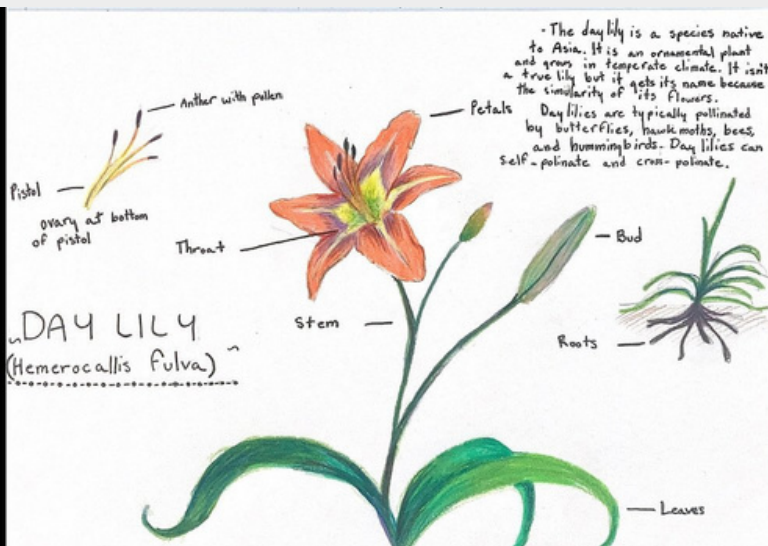 - The day lily is a species native
to Asia. It is an ornamental plant
and grows in temperate climate. It isn't
a true lily but it gets its name because
the simularity of its flowers.
Day lilies are typically pollinated
by butterflies, hawk moths, bees,
and hummingbirds. Day lilies can
self-polinate and cross-polinate.
Anther with pollen
Petals
Pistol
ovary at bottom
of pistol
Throat
Bud
~DAY LILY~
(Hemerocallis fulva)
Stem
Roots
Leaves